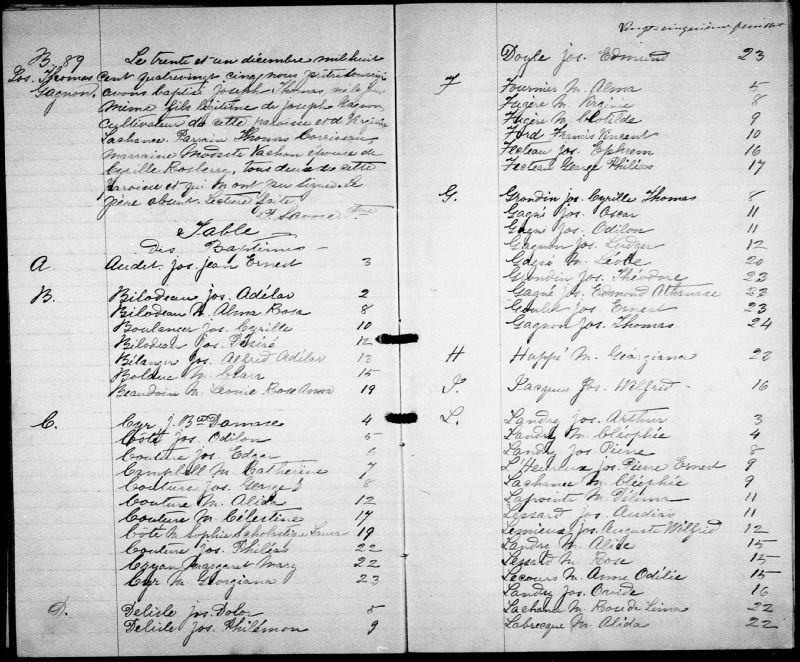 B. 89
Jos. Thomas
Gagnon,
Le trente et un décembre mil huit
cent quatrevingt cinq nous prêtre soussigné
avons baptisé Joseph Thomas né le jour
même fils légitime de Joseph Gagnon,
cultivateur de cette paroisse et de Virginie
Lachance. Parrain Thomas Corriveau
marraine Modeste Vachon épouse de
Cyrille Rosberry, tous deux de cette
paroisse et qui n'ont pu signer. Le
père absent. Lecture faite.
Ptre
Table
des Baptêmes
A. Audet jos. jean Ernest 3
B. Bilodeau jos. Adélar 2
Bilodeau M. Alma Rosa 8
Boulanger Jos. Cyrille 10
Bilodeau jos. Désiré 12
Bélanger jos. Alfred Adélar 13
Bolduc M. Clara 15
Beaudoin M. Léonie Rose Anna 19
C. Cyr j. Bte Damase 4
Côté jos. Odilon 5
Couture jos. Edgar 6
Campbell M. Catherine 7
Couture jos. George 8
Couture M. Alida 12
Couture M. Célestine 17
Côté M. Sophie Scholastique Laura 19
Couture jos. Philéas 22
Margaret Mary 22
Cyr M. Georgiana 23
D. Delisle jos. Dolor 5
Delisle Jos. Philémon 9
Vingt-cinquième
Doyle jos. Edmund 23
F Fournier M. Alma 5
Fugère M. Virginie 8
Fugère M. Clotilde 9
Ford Francis Vincent 10
Fecteau jos. Ephrem 16
Fecteau George Philéas 17
G. Grondin jos. Cyrille Thomas 8
Gagné jos. Oscar 11
Gagné Jos. Odilon 11
Gagnon Jos. Ludger 12
Gagné M. 20
Grondin Jos. Théodore 23
Gagné jos. Edmond Athanase 23
Goulet jos. Ernest 23
Gagnon Jos. Thomas 24
H Huppé M. Géorgiana 23
J. Jacques Jos. Wilfred 16
L. Landry jos. Arthur 3
Landry M. Cléophie 4
Landry jos. Pierre 8
L'Heureux jos. Pierre Ernest 9
Lachance M. Cléophie 9
Lapointe M. Délima 11
Lessard Jos. Audias 11
Lemieux jos. Auguste Wilfred 12
Landry M. Alice 15
Lessard M. Rose 15
Lecours M. Anne Odélie 15
Landry jos. Ovide 16
Lachance M. Rose de Lima 22
Labrecque M. Alida 22